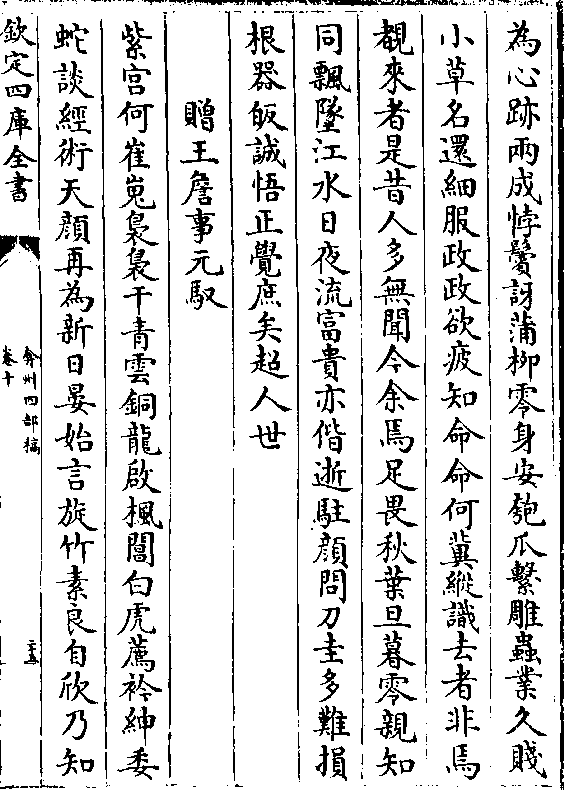 為心跡兩成悖鬢訝蒲柳零身安匏瓜繫雕蟲業久賤
小草名還細服政政欲疲知命命何冀縱識去者非焉
覩來者是昔人多無聞今余焉足畏秋葉旦暮零親知
同飄墜江水日夜流富貴亦偕逝駐顔問刀圭多難損
根器皈誠悟正覺庶矣超人世
贈王詹事元馭
紫宮何崔嵬裊裊干青雲銅龍啟楓閶白虎薦衿紳委
蛇談經術天顔再為新日晏始言旋竹素良自欣乃知
欽定四庫全書
弇州四部稿
卷十
二十五